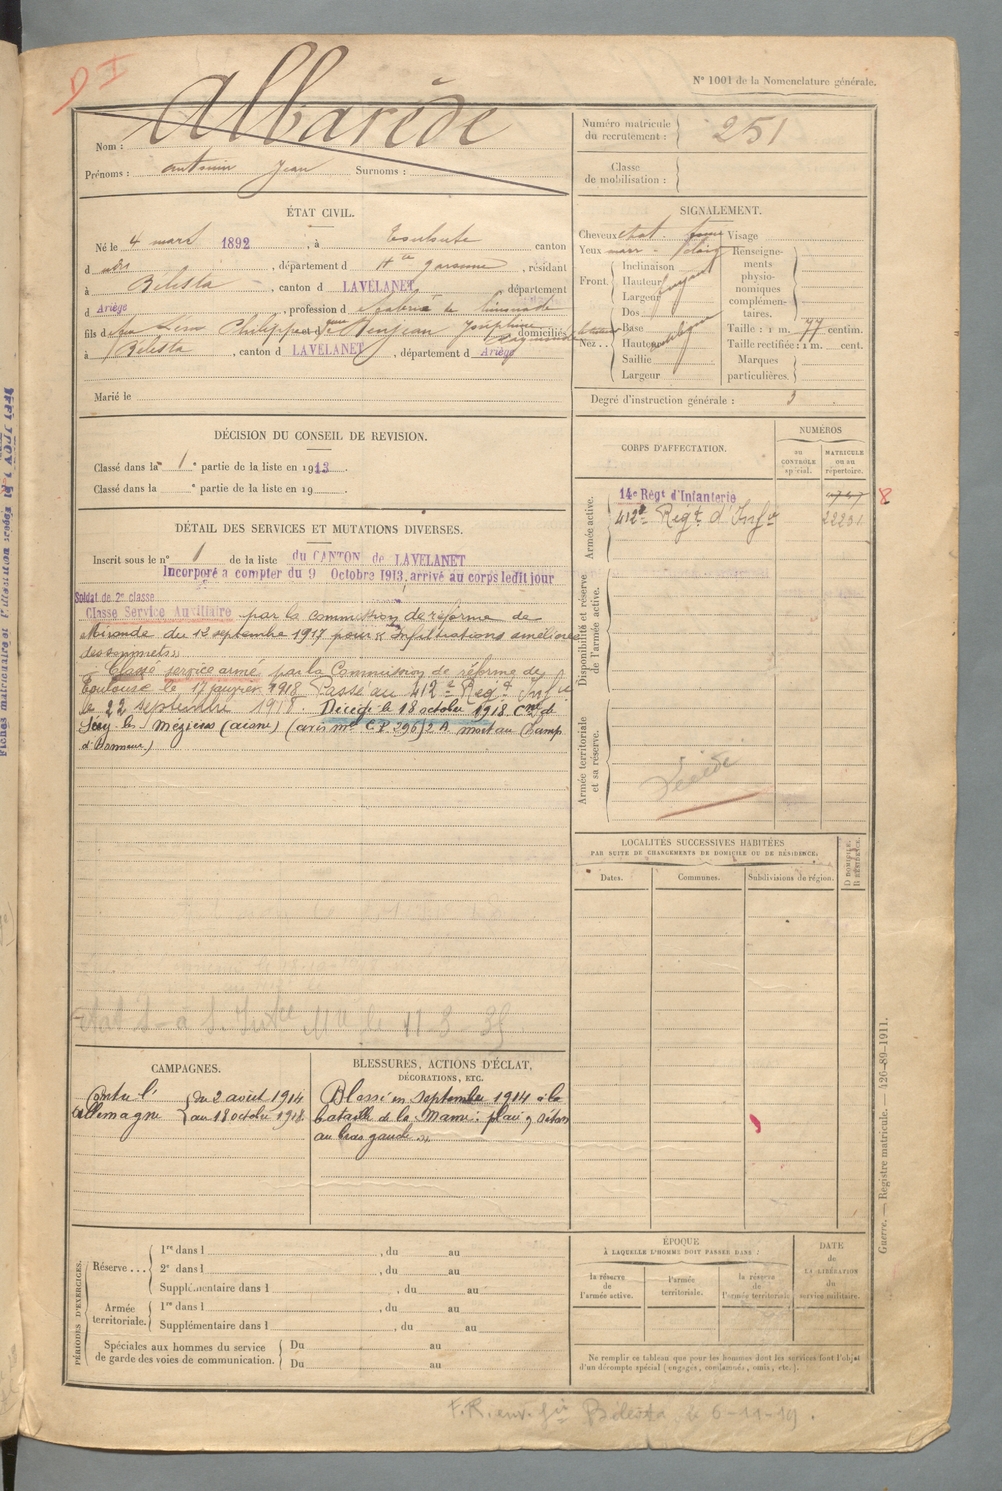 D I
N° 1001 de la Nomenclature générale.
Nom : Albarède
Prénoms : Antonin Jean Surnoms :
Numéro matricule du recrutement : 251
Classe de mobilisation :
ÉTAT CIVIL.
Né le 4 mars 1892, à Toulouse canton
d udit, département d Hte Garonne, résidant
à Bélesta, canton d LAVELANET département
d Ariège, profession d de limonade
fils d feu Philippe et d Josephine domiciliés
à Bélesta, canton d LAVELANET, département d Ariège
Marié le
SIGNALEMENT.
Cheveux chat. Visage
Yeux marr
Front. Inclinaison
Hauteur
Largeur
Nez .. Dos
Base
Hauteur
Saillie
Largeur
Renseignements physionomiques complémentaires.
Taille : 1 m. 77 centim.
Taille rectifiée : 1 m. cent.
Marques particulières.
Degré d'instruction générale : 3
DÉCISION DU CONSEIL DE REVISION.
Classé dans la 1e partie de la liste en 1913.
Classé dans la e partie de la liste en 19
CORPS D'AFFECTATION.
NUMÉROS
au CONTRÔLE spécial.
MATRICULE ou au répertoire.
Armée active.
14e Régt d'Infanterie
8
412e Regt d'Infie 22231
Disponibilité et réserve de l'armée active.
Armée territoriale et sa réserve.
Décédé
DÉTAIL DES SERVICES ET MUTATIONS DIVERSES.
Inscrit sous le n° 1 de la liste du CANTON de LAVELANET
Incorporé à compter du 9 Octobre 1913, arrivé au corps ledit jour
Soldat de 2e classe
Classé Service Auxiliaire par la commission de réforme de
Mirande du 12 septembre 1917 pour « Infiltrations améliorées
des sommets »
Classé service armé par la Commission de réforme de
Toulouse le 17 janvier 1918. Passé au 412e Regt Infie
le 22 septembre 1918. Décédé le 18 octobre 1918 Cne de
Séry-les-Mézières (aisne) (avis mel C.P. 296) mort au Champ
d'Honneur)
LOCALITÉS SUCCESSIVES HABITÉES
PAR SUITE DE CHANGEMENTS DE DOMICILE OU DE RÉSIDENCE.
Dates.
Communes.
Subdivisions de région.
D DOMICILE. R RÉSIDENCE.
le 11-8-35
CAMPAGNES.
Contre l' du 2 août 1914
allemagne au 18 octobre 1918
BLESSURES, ACTIONS D'ÉCLAT, DÉCORATIONS, ETC.
Blessé en septembre 1914 à la
bataille de la Marne : plaie
au bras gauche »
PÉRIODES D'EXERCICES.
Réserve ...
1re dans l , du au
2e dans l , du au
Supplémentaire dans l , du au
Armée territoriale.
1re dans l , du au
Supplémentaire dans l , du au
Spéciales aux hommes du service de garde des voies de communication.
Du au
Du au
ÉPOQUE
À LAQUELLE L'HOMME DOIT PASSER DANS :
la réserve de l'armée active.
l'armée territoriale.
la réserve de l'armée territoriale
DATE de LA LIBÉRATION du service militaire.
Ne remplir ce tableau que pour les hommes dont les services font l'objet
d'un décompte spécial (engagés, condamnés, omis, etc.).
Guerre. — Registre matricule. — 426-89-1911.
F.R. env. Bélesta, le 6-11-19.